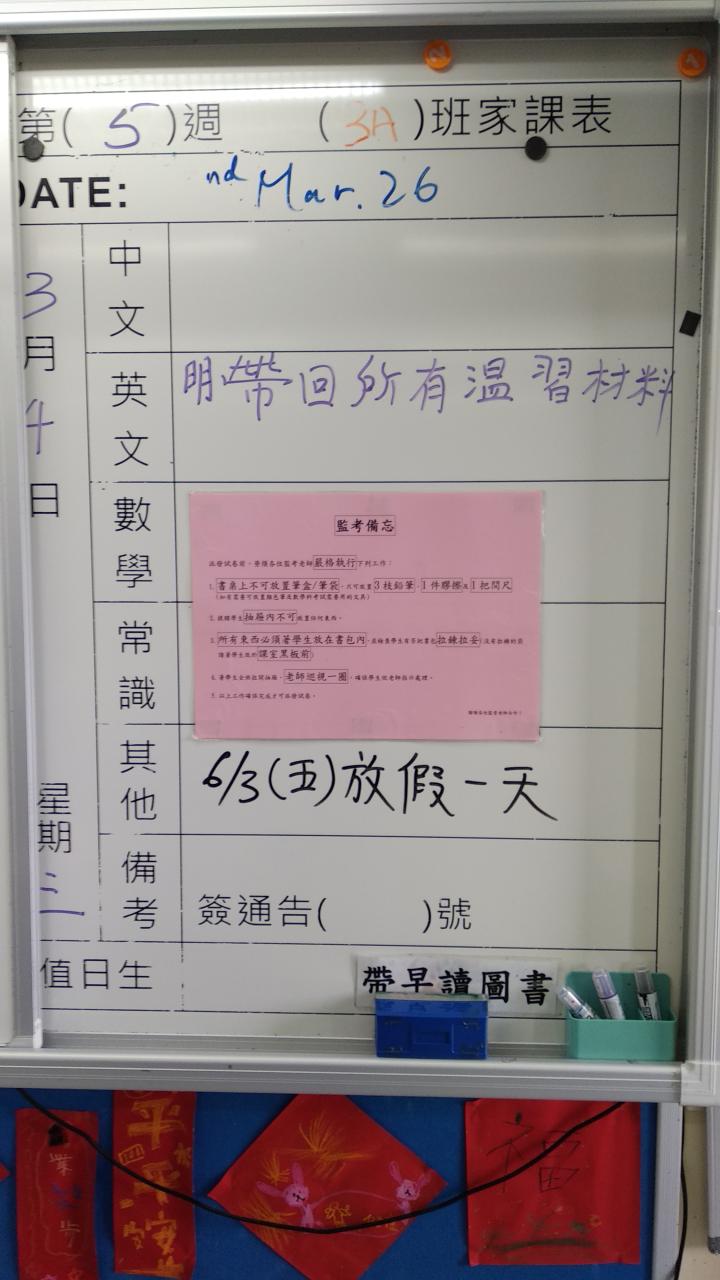 第( 5 )週 ( 3A )班家課表
DATE: nd Mar. 26
3月4日
星期三
中文
英文 明帶回所有溫習材料
數學
常識
其他 6/3(五)放假一天
備考 簽通告( )號
值日生
帶早讀圖書
監考備忘
派發試卷前，煩請各位監考老師嚴格執行下列工作：
1. 書桌上不可放置筆盒/筆袋，只可放置3枝鉛筆、1件膠擦及1把間尺
(如有需要可放置顏色筆及數學科考試需要用的文具)
2. 提醒學生抽屜內不可放置任何東西。
3. 所有東西必須著學生放在書包內，並檢查學生有否把書包拉鍊拉妥(沒有拉鍊的袋
請著學生放於課室黑板前)
4. 著學生全班拉開抽屜，老師巡視一圈，確保學生依老師指示處理。
5. 以上工作確保完成才可派發試卷。
平平安安
福